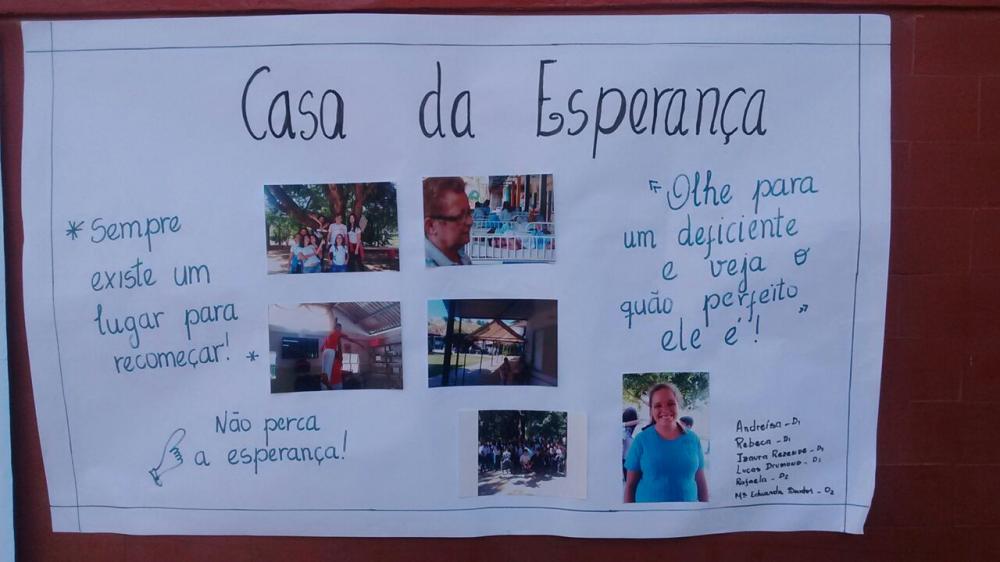 Casa da Esperança
* Sempre
existe um
lugar para
recomeçar! *
Não perca
a esperança!
"Olhe para
um deficiente
e veja o
quão perfeito
ele é!"
Andreísa - D1
Rebeca - D1
Izaura Rezende - D1
Lucas Drumond - D1
Rafaela - D2
Mª Eduarda - D2